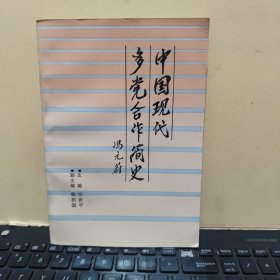 中国现代
多党合作简史
冯元蔚
●主编
●副主编